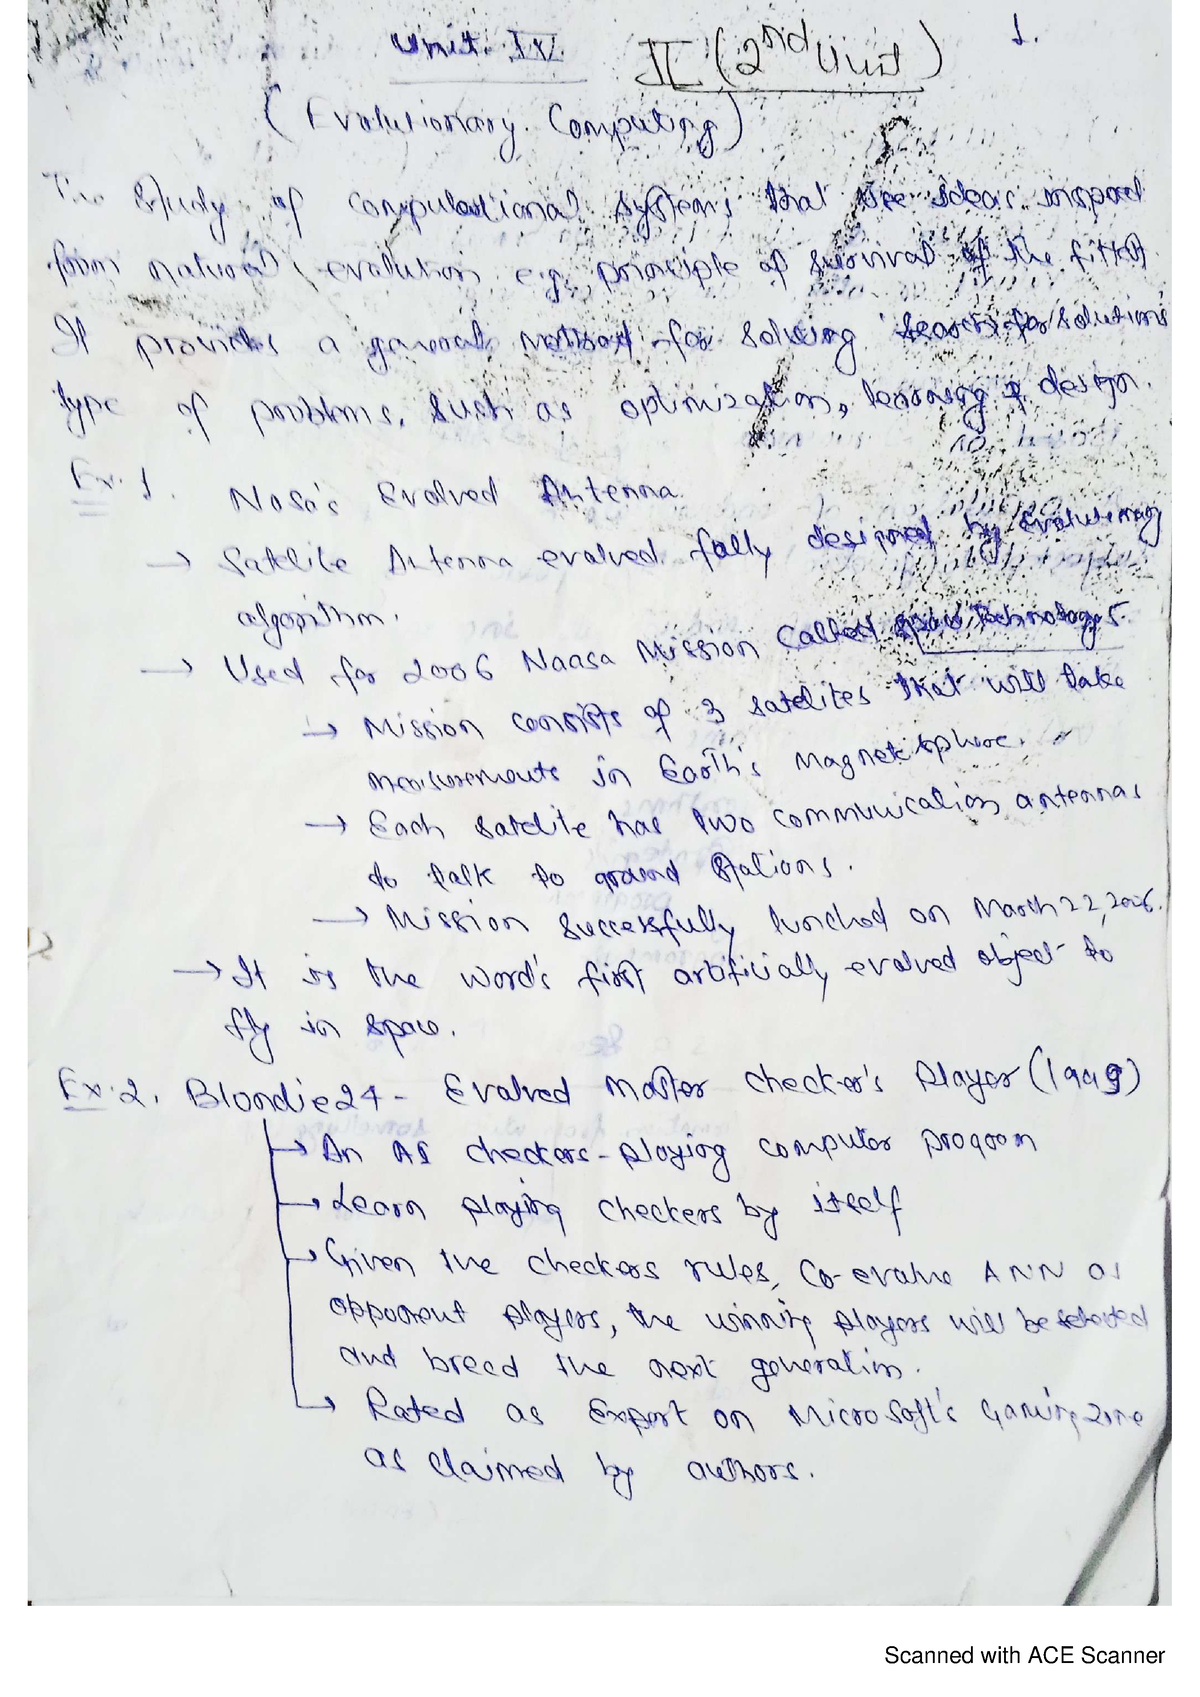 Unit. IV II (2nd Unit) 1.
(Evolutionary Computing)
The study of computational systems that use ideas inspired
from natural evolution e.g. principle of survival of the fittest
It provides a general method for solving search for solutions
type of problems, such as optimization, learning & design.
Ex. 1. Nasa's Evolved Antenna
→ Satelite Antenna evolved fully designed by Evolutionary
algorithm.
→ Used for 2006 Naasa Mission Called Space Technology 5.
→ Mission consists of 3 satelites that will take
measurements in Earth's Magnetosphere.
→ Each satelite has two communication antennas
to talk to ground stations.
→ Mission successfully lunched on March 22, 2006.
→ It is the word's first artificially evolved object to
fly in space.
Ex. 2. Blondie24 - Evolved Master checker's player (1999)
→ An AI checkers-playing computer program
→ Learn playing checkers by itself
→ Given the checkers rules, Co-evolve ANN as
opponent players, the winning players will be selected
and breed the next generation.
→ Rated as Expert on Microsoft's Gaming zone
as claimed by authors.
Scanned with ACE Scanner